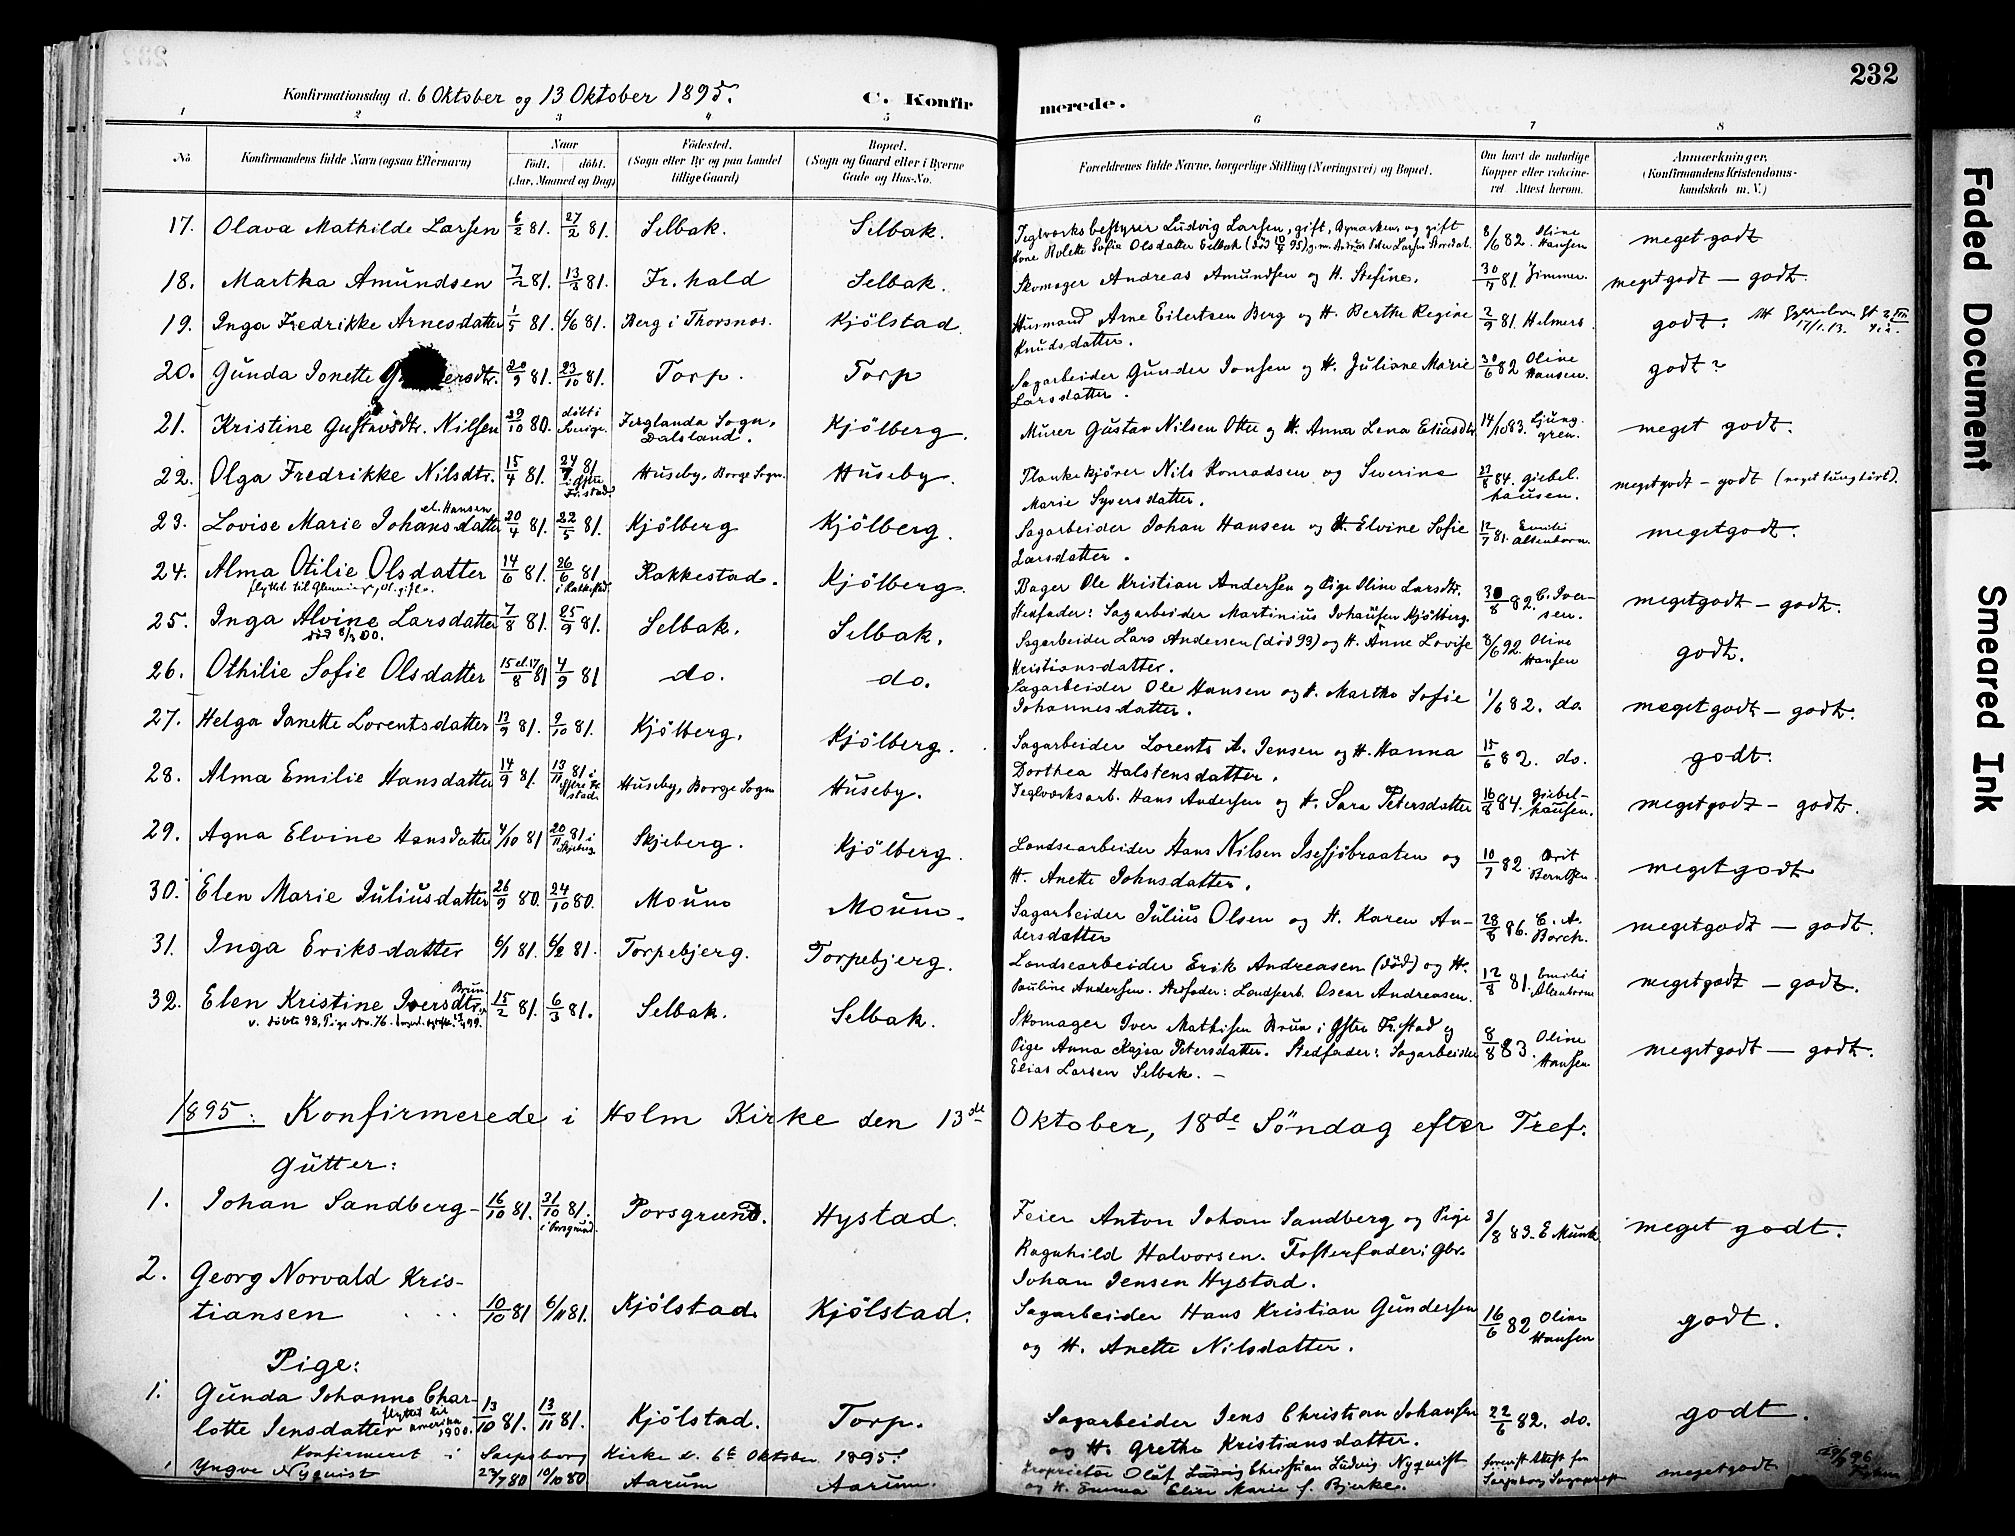 232
Konfirmationsdag d. 6 Oktober og 13 Oktober 1895. C. Konfirmerede.
1 2 3 4 5 6 7 8
No. Konfirmandens fulde Navn (ogsaa Efternavn) Naar født. døbt. (Aar, Maaned og Dag) Fødested. (Sogn eller By og paa Landet tillige Gaard) Bopæl. (Sogn og Gaard eller i Byerne Gade og Hus-No. Forældrenes fulde Navne, borgerlige Stilling (Næringsvei) og Bopæl. Om havt de naturlige Kopper eller vakcineret. Attest herom. Anmærkninger. (Konfirmandens Kristendomskundskab m. V.)
17. Olava Mathilde Larsen 6/2 81. 27/2 81. Selbak. Selbak. Teglværksbestyrer Ludvig Larsen, gift, og gift 8/6 82. Oline Hansen meget godt
Kone Sofie Olsdatter Selbak
18. Martha Amundsen 7/2 81. 13/3 81. Fr.hald Selbak. Skomager Andreas Amundsen og H. Stefine. 30/7 81. Zimmer. megetgodt – godt.
19. Inga Fredrikke Arnesdatter 1/5 81. 6/6 81. Berg i Thorsnes. Kjölstad. Husmand Arne Eilertsen Berg og H. Berthe Regine Knudsdatter. 2/9 81. Helmers godt. 17/1.13.
20. Gunda Jonette ersdtr. 20/9 81. 23/10 81. Torp. Torp Sagarbeider Gunder Jonsen og H. Juliane Marie Larsdatter. 30/6 82 Oline Hansen. godt?
21. Kristine Gustavsdtr. Nilsen 29/10 80. döbt i Sverige. Ferglanda Sogn, Dalsland. Kjölberg. Murer Gustav Nilsen Otter og H. Anna Lena Eliasdtr 14/10 83. Ljunggren. meget godt.
22. Olga Fredrikke Nilsdtr. 15/4 81. 24/7 81 i Glstre Fr.stad Huseby, Borge Sogn. Huseby. Plankekjörer Nils Konradsen og Severine Marie Syversdatter. 27/8 84. Giebelhausen. megetgodt – godt (noget tunglært).
23. Lovise Marie Johansdatter el. Hansen 20/4 81. 22/5 81. Kjölberg Kjölberg. Sagarbeider Johan Hansen og H. Elvine Sofie Larsdatter. 12/7 81. Emilie Altenborn. megetgodt.
24. Alma Otilie Olsdatter 14/6 81. 26/6 81 i Rakkestad. Rakkestad. Kjölberg Bager Ole Kristian Andersen og Pige Oline Larsdtr. Stedfader: Sagarbeider Martinius Johansen Kjölberg. 30/8 82. C. Iversen. megetgodt – godt.
flyttet til Glemminge, bl. gift.
25. Inga Alvine Larsdatter 7/8 81. 25/9 81. Selbak. Selbak. Sagarbeider Lars Andersen (död 93) og H. Anne Lovise Kristiansdatter. 8/6 92. Oline Hansen godt.
död 8/3 00.
26. Othilie Sofie Olsdatter 15 el. 17/8 81 4/9 81 do. do. Sagarbeider Ole Hansen og H. Marthe Sofie Johannesdatter. 1/6 82. do. megetgodt – godt.
27. Helga Janette Lorentsdatter 13/9 81. 9/10 81. Kjölberg. Kjölberg. Sagarbeider Lorents A. Jensen og H. Hanna Dorthea Halstensdatter. 15/6 82. do. godt.
28. Alma Emilie Hansdatter 14/9 81. 13/11 81 i Glstre Fr stad. Huseby, Borge Sogn Huseby. Teglværksarb. Hans Andersen og H. Sara Petersdatter 16/8 84. Giebelhausen. megetgodt – godt.
29. Agna Elvine Hansdatter 4/10 81 20/11 81 i Skjeberg Skjeberg. Kjölberg. Landsearbeider Hans Nilsen Isesjöbraaten og H. Anette Johnsdatter. 10/7 82. Berit Berntsen. megetgodt
30. Elen Marie Juliusdatter 26/9 80. 24/10 80. Moum Moum. Sagarbeider Julius Olsen og H. Karen Andersdatter 28/8 86. C. A. Borch. megetgodt – godt.
31. Inga Eriksdatter 6/1 81. 6/2 81. Torpebjerg. Torpebjerg. Landsearbeider Erik Andreasen (död) og H. Pauline Andersen. Stedfader: Landsearb. Oscar Andreasen. 12/8 81. Emilie Altenborn megetgodt – godt.
32. Elen Kristine Iversdtr. Brun 15/2 81. 6/3 81. Selbak. Selbak. Skomager Iver Mathisen Brun i Glstre Fr.stad og Pige Anna Kajsa Petersdatter. Stedfader: Sagarbeider Elias Larsen Selbak. – 8/8 83. Oline Hansen megetgodt – godt.
v. döbte 98, Pige No. 76.
1895: Konfirmerede i Holm Kirke den 13de Oktober, 18de Söndag efter Tref.
Gutter:
1. Johan Sandberg – 16/10 81. 31/10 81. i Porsgrund. Porsgrund. Hystad. Feier Anton Johan Sandberg og Pige Ragnhild Halvorsen. Fosterfader: Gbr. Johan Jensen Hystad. 3/8 83. E Munk meget godt.
2. Georg Norvald Kristiansen 10/10 81 6/11 81. Kjölstad. Kjölstad. Sagarbeider Hans Kristian Gundersen og H. Anette Nilsdatter. 16/6 82 Oline Hansen godt.
Pige:
1. Gunda Johanne Charlotte Jensdatter flyttet til Amerika 1900. 13/10 81. 13/11 81. Kjölstad. Torp. Sagarbeider Jens Christian Johansen og H. Grethe Kristiansdatter. 22/6 82. do. godt.
Konfirmeret i Sarpsborg Kirke d. 6te Oktober 1895:
1 Yngve Nyquist 23/7 80 10/10 80 Aarum Aarum. Proprietær Oluf Ludvig Christian Ludvig Nyquist og H. Emma Elise Marie f. Bjerke. forevist Attest fra Sarpsborg Sogneprest megetgodt
Faded Document
Smeared Ink